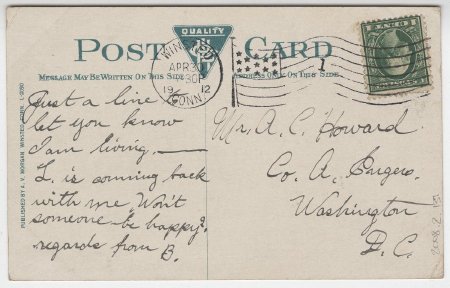 POST CARD
QUALITY
MESSAGE MAY BE WRITTEN ON THIS SIDE
ADDRESS ONLY ON THIS SIDE
WINSTED
APR 30
30P
1912
CONN
1
Just a line
let you know
I am living.
L. is coming back
with me. Won't
someone be happy?
regards from B.
Mr. A. C. Howard
Co. A, Engrs.
Washington
D. C.
PUBLISHED BY A. V. MORGAN, WINSTED, CONN.